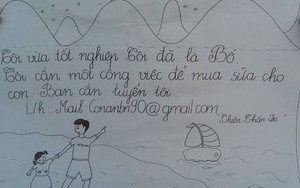 Tôi vừa tốt nghiệp Tôi đã là Bố
Tôi cần một công việc để mua sữa cho
con Bạn cần tuyển tôi
L/h: Mail Conanbn90@gmail.com
"Thiên Thần